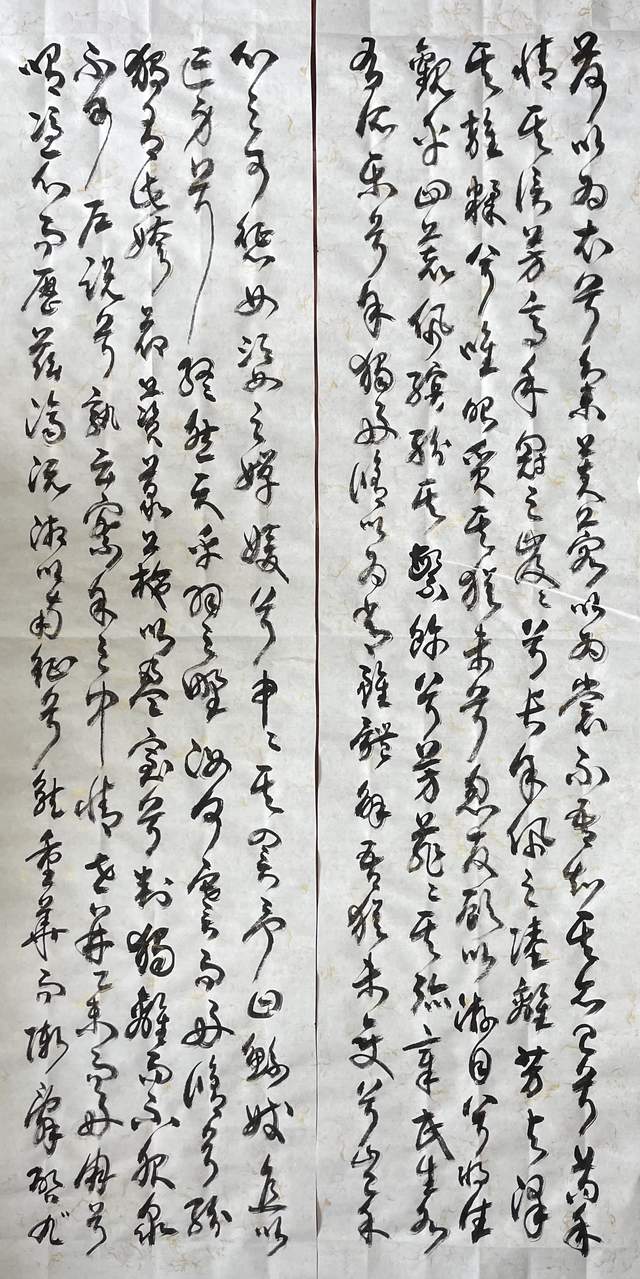 荷以為衣兮集芙蓉以為裳不吾知其亦已兮苟余
情其信芳高余冠之岌岌兮長余佩之陸離芳與澤
其雜糅兮唯昭質其猶未虧忽反顧以游目兮將往
觀乎四荒佩繽紛其繁飾兮芳菲菲其彌章民生各
有所樂兮余獨好脩以為常雖體解吾猶未變兮豈余
心之可懲女嬃之嬋媛兮申申其詈予曰鯀婞直以
亡身兮終然夭乎羽之野汝何謇而好脩兮紛
獨有此姱節薋菉葹以盈室兮判獨離而不服眾
不可戶說兮孰云察余之中情世並舉而好朋兮
喟憑心而歷茲濟沅湘以南征兮就重華而陳辭啟九